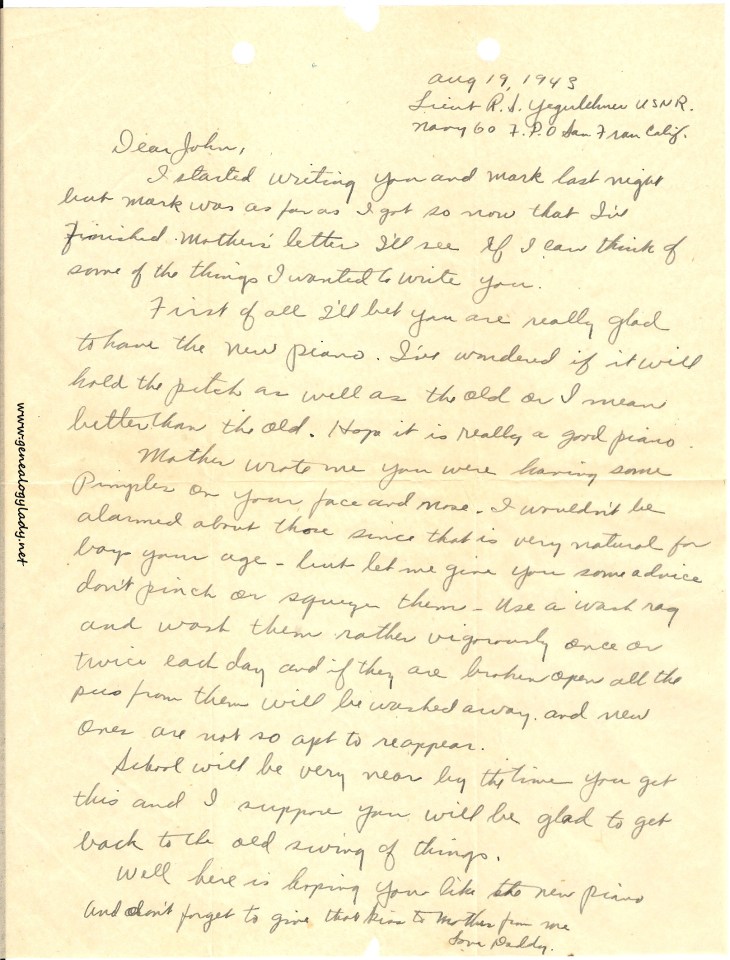 Aug 19, 1943
Lieut R. S. Yegerlehner USNR.
Navy 60 F.P.O San Fran Calif.
Dear John,
I started writing you and Mark last night
but Mark was as far as I got so now that I've
finished Mother's letter I'll see if I can think of
some of the things I wanted to write you.
First of all I'll bet you are really glad
to have the new piano. I've wondered if it will
hold the pitch as well as the old or I mean
better than the old. Hope it is really a good piano.
Mother wrote me you were having some
Pimples on your face and nose. I wouldn't be
alarmed about those since that is very natural for
boys your age - but let me give you some advice
don't pinch or squeeze them - Use a wash rag
and wash them rather vigorously once or
twice each day and if they are broken open all the
pus from them will be washed away. and new
ones are not so apt to reappear.
School will be very near by the time you get
this and I suppose you will be glad to get
back to the old swing of things.
Well here is hoping you like the new piano
and don't forget to give that kiss to Mother from me
Love Daddy.
www.genealogylady.net